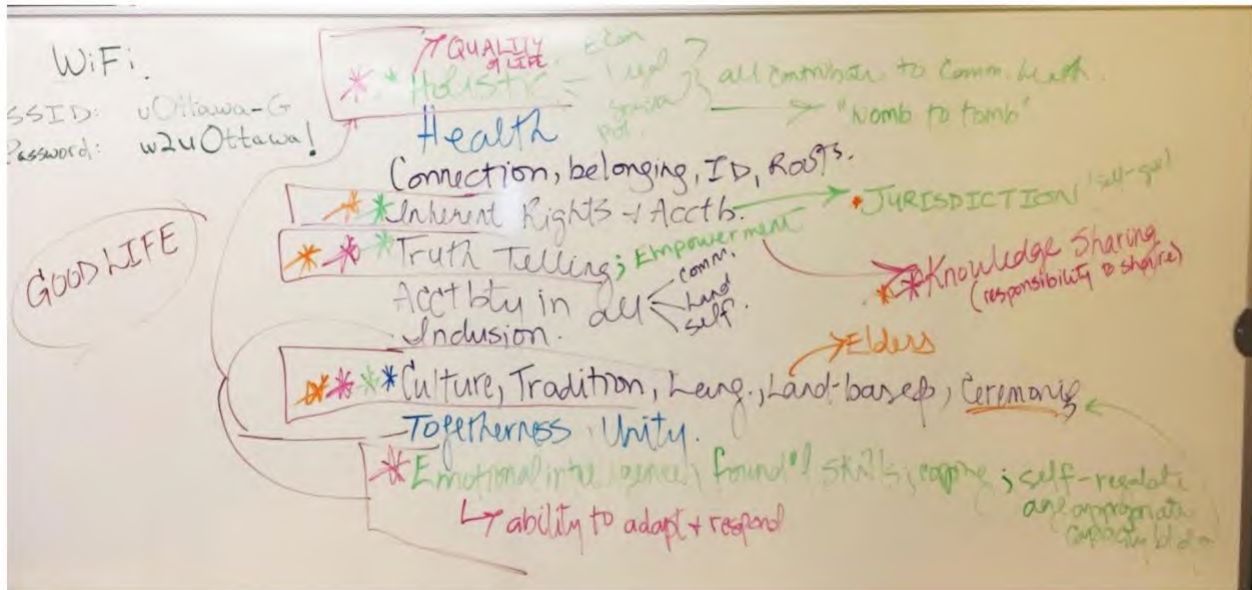 WiFi.
SSID: uOttawa-G
Password: w2uOttawa!
GOOD LIFE
QUALITY
of LIFE
* * Holistic - Econ
Legal
pol.
all contribute to Comm. health.
"Womb to tomb"
Health
Connection, belonging, ID, Roots.
* * Inherent Rights + Acctb.
JURISDICTION
* * * Truth Telling; Empowerment
* * Knowledge Sharing
(responsibility to share)
Acctbty in all
comm.
Land
self.
Inclusion.
Elders
* * * * Culture, Tradition, Lang., Land-based, Ceremonies
Togetherness. Unity.
* Emotional intelligence, found'l skills, coping; self-regulate
age appropriate
↳ ability to adapt + respond